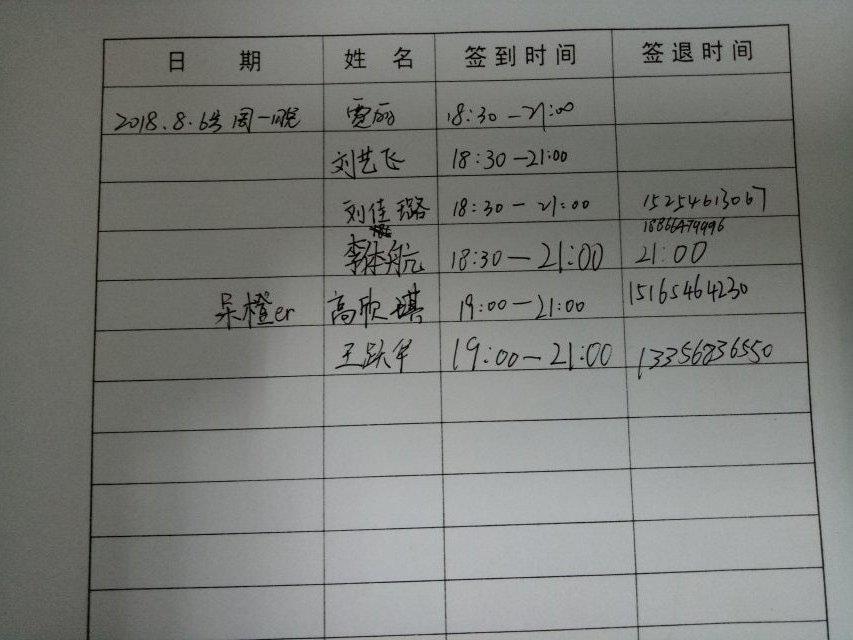 日 期 姓 名 签到时间 签退时间
2018.8.6号周一晚 贾丽 18:30-21:00
刘艺飞 18:30-21:00
刘佳璐 18:30-21:00 15254613067
18866479996
李体航 18:30-21:00 21:00
呆橙er 高欣琪 19:00-21:00 15165464230
王跃华 19:00-21:00 13356836550